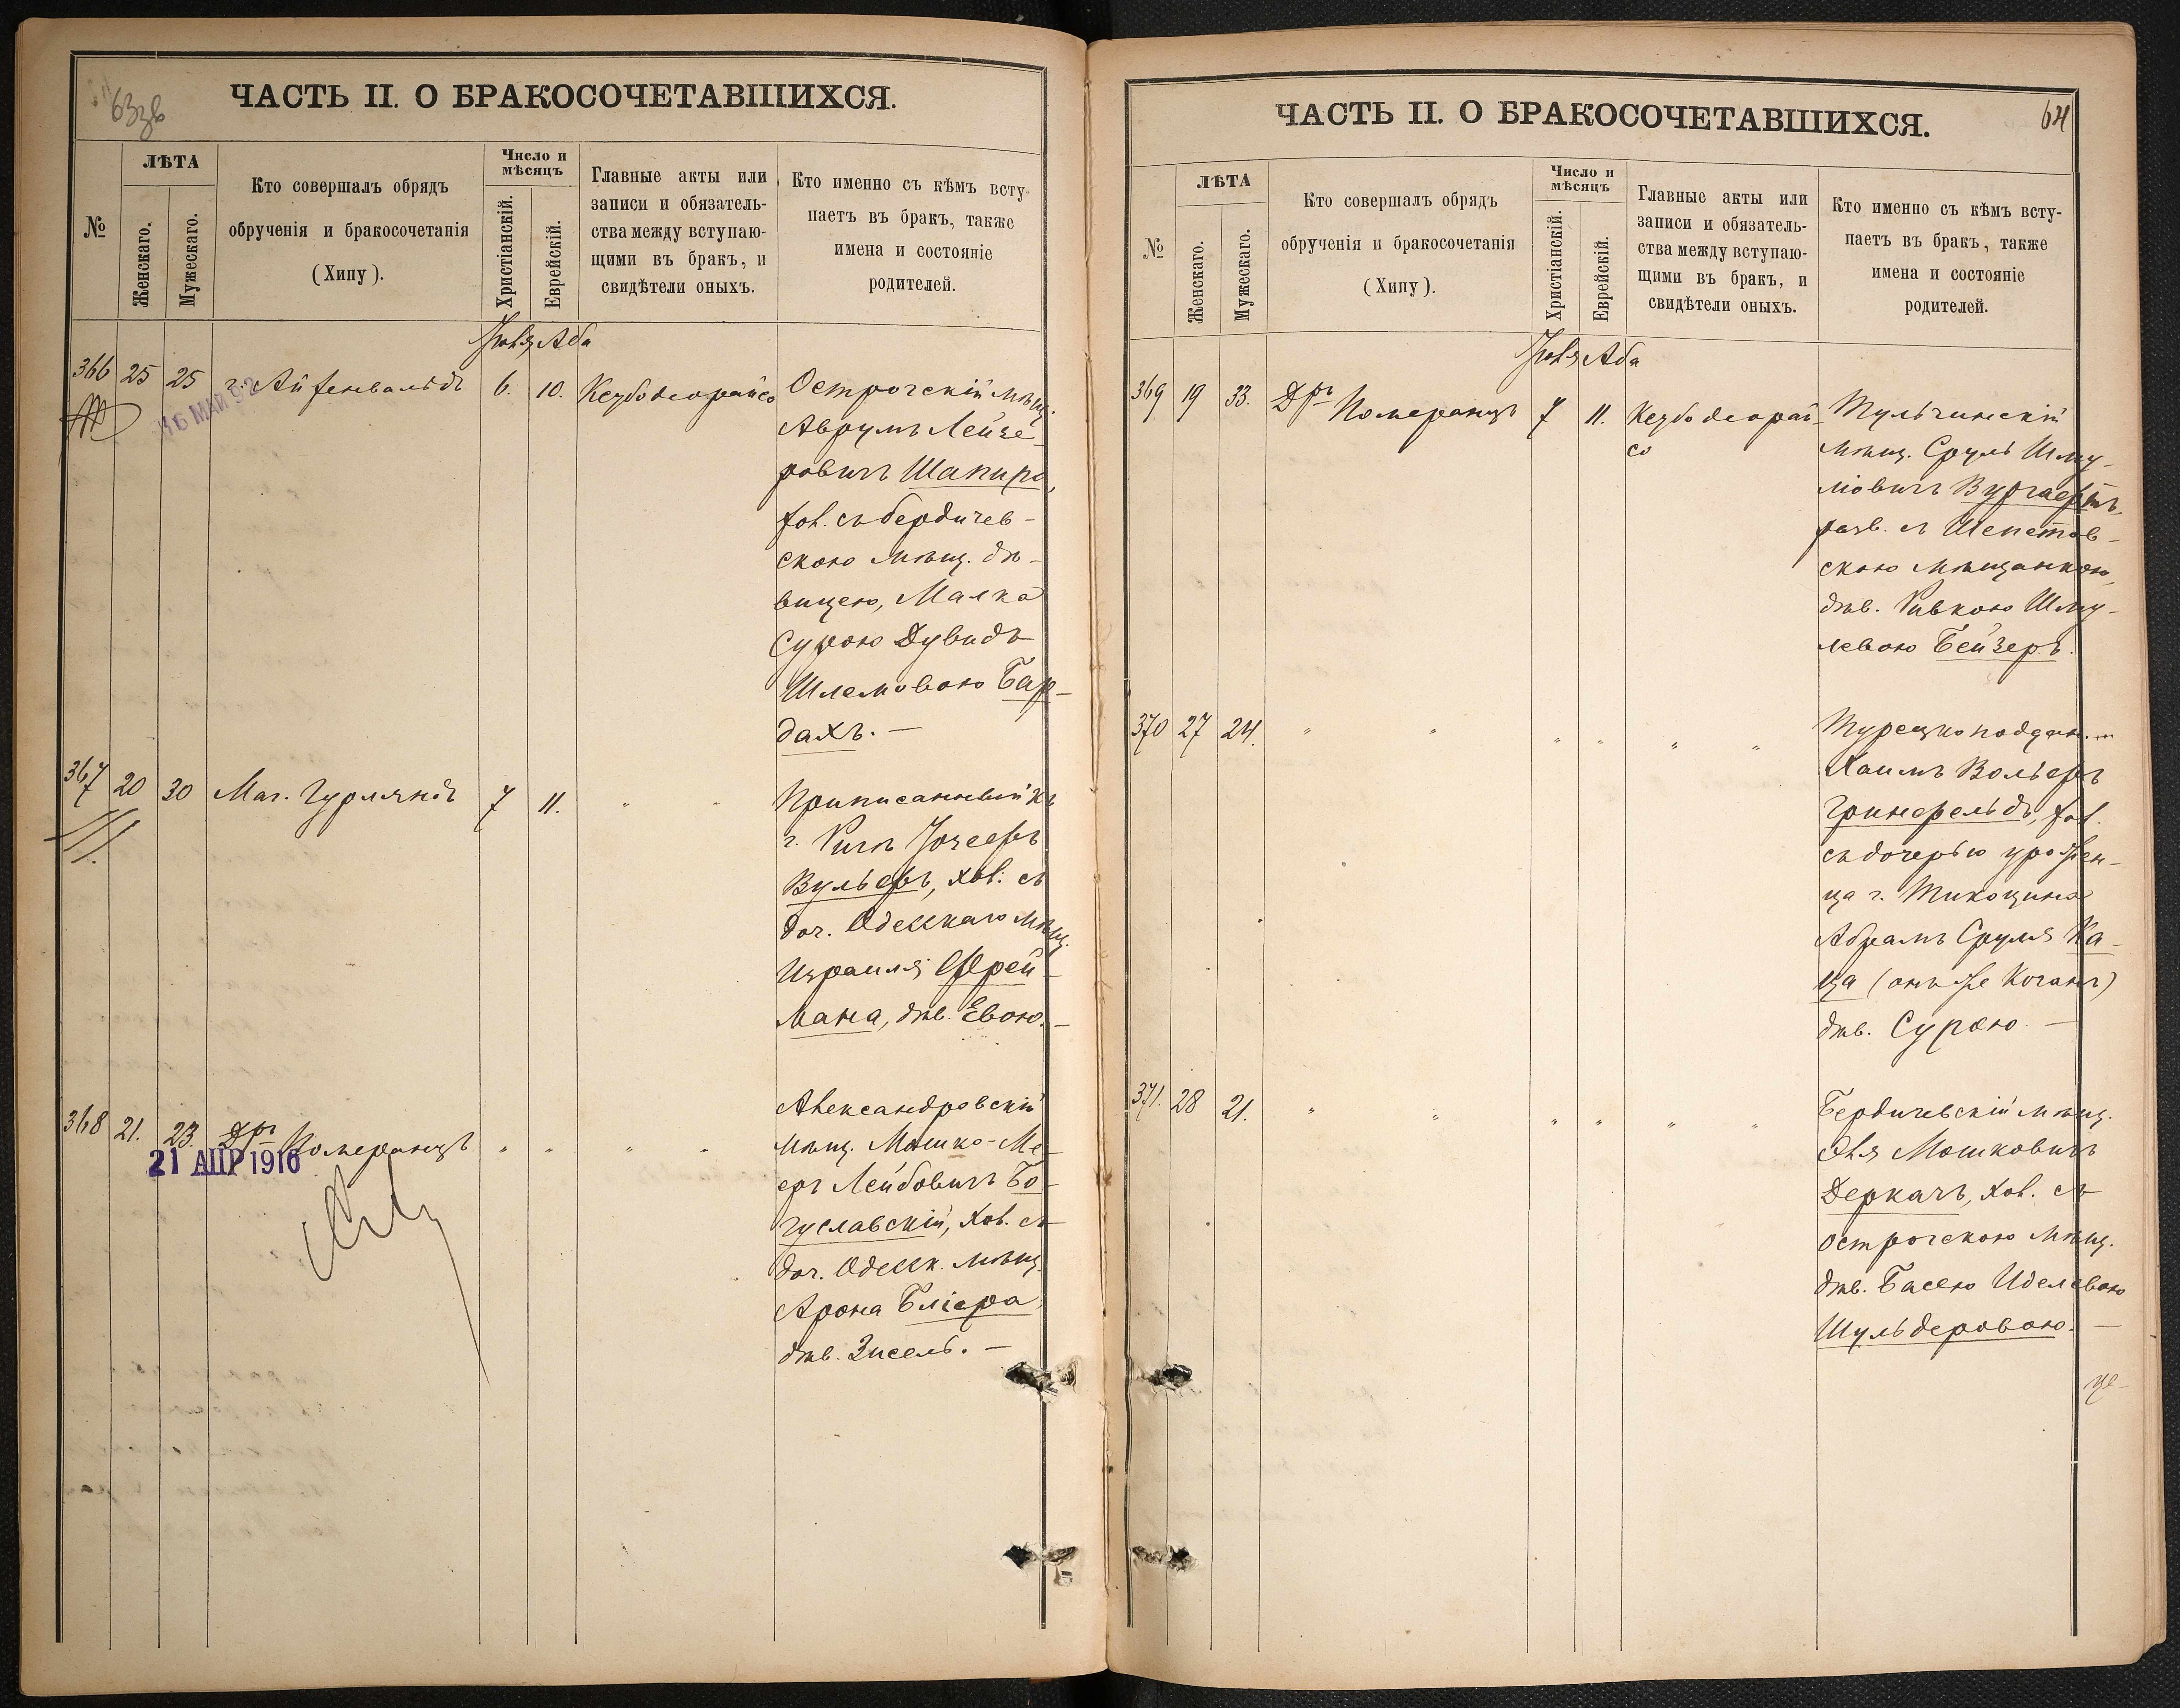 63зв
ЧАСТЬ II. О БРАКОСОЧЕТАВШИХСЯ.
№
ЛѢТА
Женскаго.
Мужескаго.
Кто совершалъ обрядъ
обрученія и бракосочетанія
(Хипу).
Число и
мѣсяцъ
Христіанскій.
Еврейскій.
Главные акты или
записи и обязатель-
ства между вступаю-
щими въ бракъ, и
свидѣтели оныхъ.
Кто именно съ кѣмъ всту-
паетъ въ бракъ, также
имена и состояніе
родителей.
Іюля Аба
366 25 25 г. Айзенвальдъ 6. 10. Кезубо деорайсо Острогскій мѣщ.
16 МАЙ 92
Аврумъ Лейзе-
ровичъ Шапиро,
хол. съ бердичев-
скою мѣщ. дѣ-
вицею, Малка
Сурою Дувидъ
Шлемовою Бар-
дахъ. —
367 20 30 Маг. Гурляндъ 7 11. " " Приписанный къ
г. Ригѣ Іозефъ
Вульфъ, хол. съ
доч. Одесскаго мѣщ.
Израиля Фрей-
мана, дѣв. Евою. —
368 21. 23. Дръ Померанцъ " " " " Александровскій
21 АПР 1916
мѣщ. Мошко-Ме-
еръ Лейбовичъ Бо-
гуславскій, хол. съ
доч. Одесск. мѣщ.
Арона Бліера,
дѣв. Зисель. —
64
ЧАСТЬ II. О БРАКОСОЧЕТАВШИХСЯ.
№
ЛѢТА
Женскаго.
Мужескаго.
Кто совершалъ обрядъ
обрученія и бракосочетанія
(Хипу).
Число и
мѣсяцъ
Христіанскій.
Еврейскій.
Главные акты или
записи и обязатель-
ства между вступаю-
щими въ бракъ, и
свидѣтели оныхъ.
Кто именно съ кѣмъ всту-
паетъ въ бракъ, также
имена и состояніе
родителей.
Іюля Аба
369 19 33. Дръ Померанцъ 7 11. Кезубо деорай- Тульчинскій
со мѣщ. Сруль Шму-
ліовичъ Вургафтъ,
разв. съ Шепетов-
скою мѣщанкою,
дѣв. Ривкою Шму-
левою Бейзеръ.
370 27 24. " " " " " " Турецкоподдан.
Хаимъ Вольфъ
Гринфельдъ, хол.
съ дочерью урожен-
ца г. Тикоцина
Абрамъ Сруля Ка-
ца (онъ же Коганъ)
дѣв. Сурою. —
371. 28 21. " " " " " " Бердичевскій мѣщ.
Эля Мошковичъ
Деркачъ, хол. съ
Острогскою мѣщ.
дѣв. Басею Иделевою
Шульдеровою. —